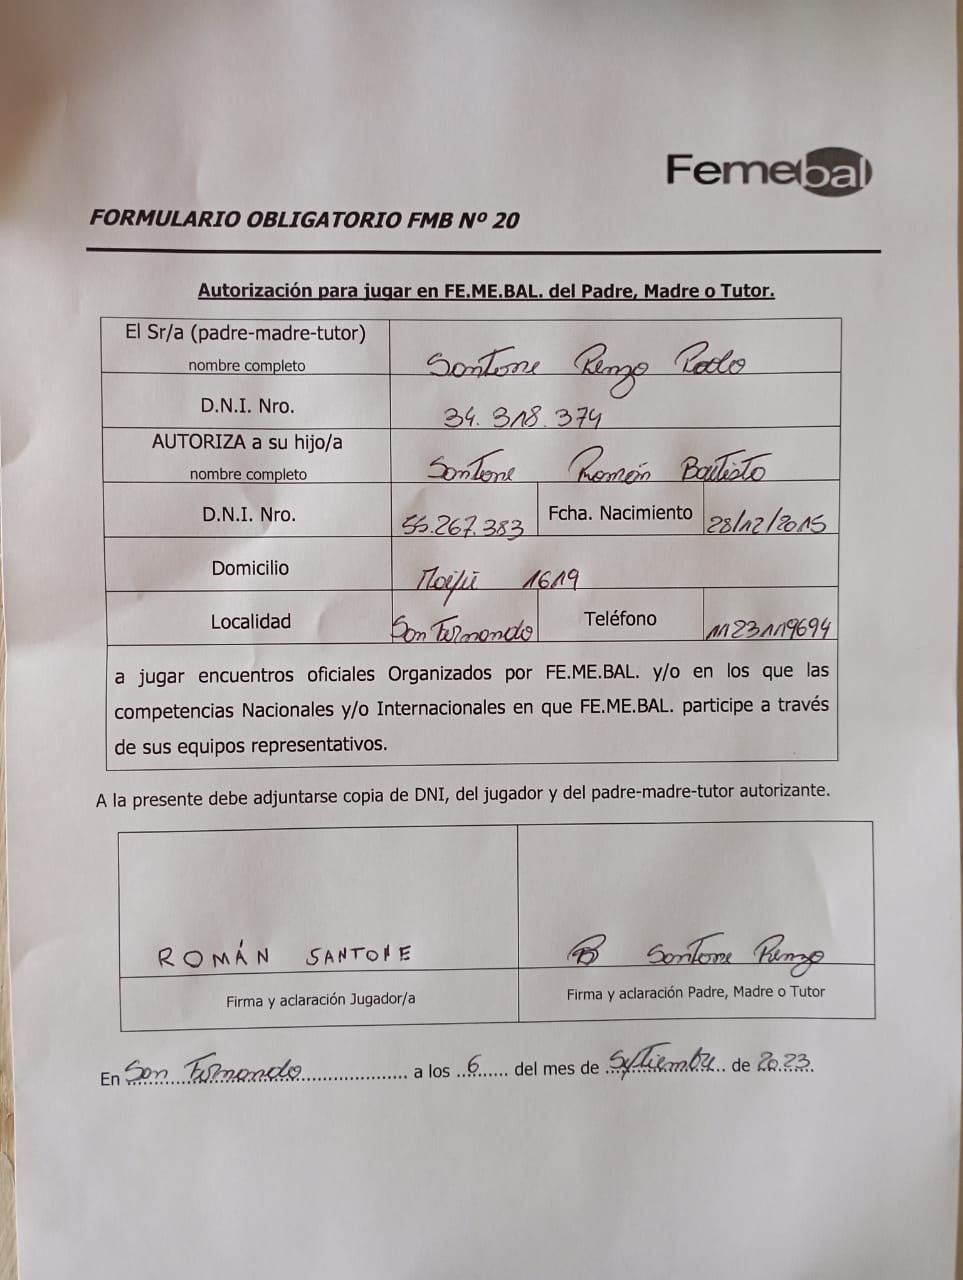 Femebal
FORMULARIO OBLIGATORIO FMB Nº 20
Autorización para jugar en FE.ME.BAL. del Padre, Madre o Tutor.
El Sr/a (padre-madre-tutor)
nombre completo
Santone Renzo Paolo
D.N.I. Nro.
34.318.374
AUTORIZA a su hijo/a
nombre completo
Santone Román Bautista
D.N.I. Nro.
55.267.383
Fcha. Nacimiento
28/12/2015
Domicilio
1619
Localidad
San Fernando
Teléfono
1123119694
a jugar encuentros oficiales Organizados por FE.ME.BAL. y/o en los que las
competencias Nacionales y/o Internacionales en que FE.ME.BAL. participe a través
de sus equipos representativos.
A la presente debe adjuntarse copia de DNI, del jugador y del padre-madre-tutor autorizante.
ROMÁN SANTONE
Santone Renzo
Firma y aclaración Jugador/a
Firma y aclaración Padre, Madre o Tutor
En San Fernando a los 6 del mes de Septiembre de 2023.